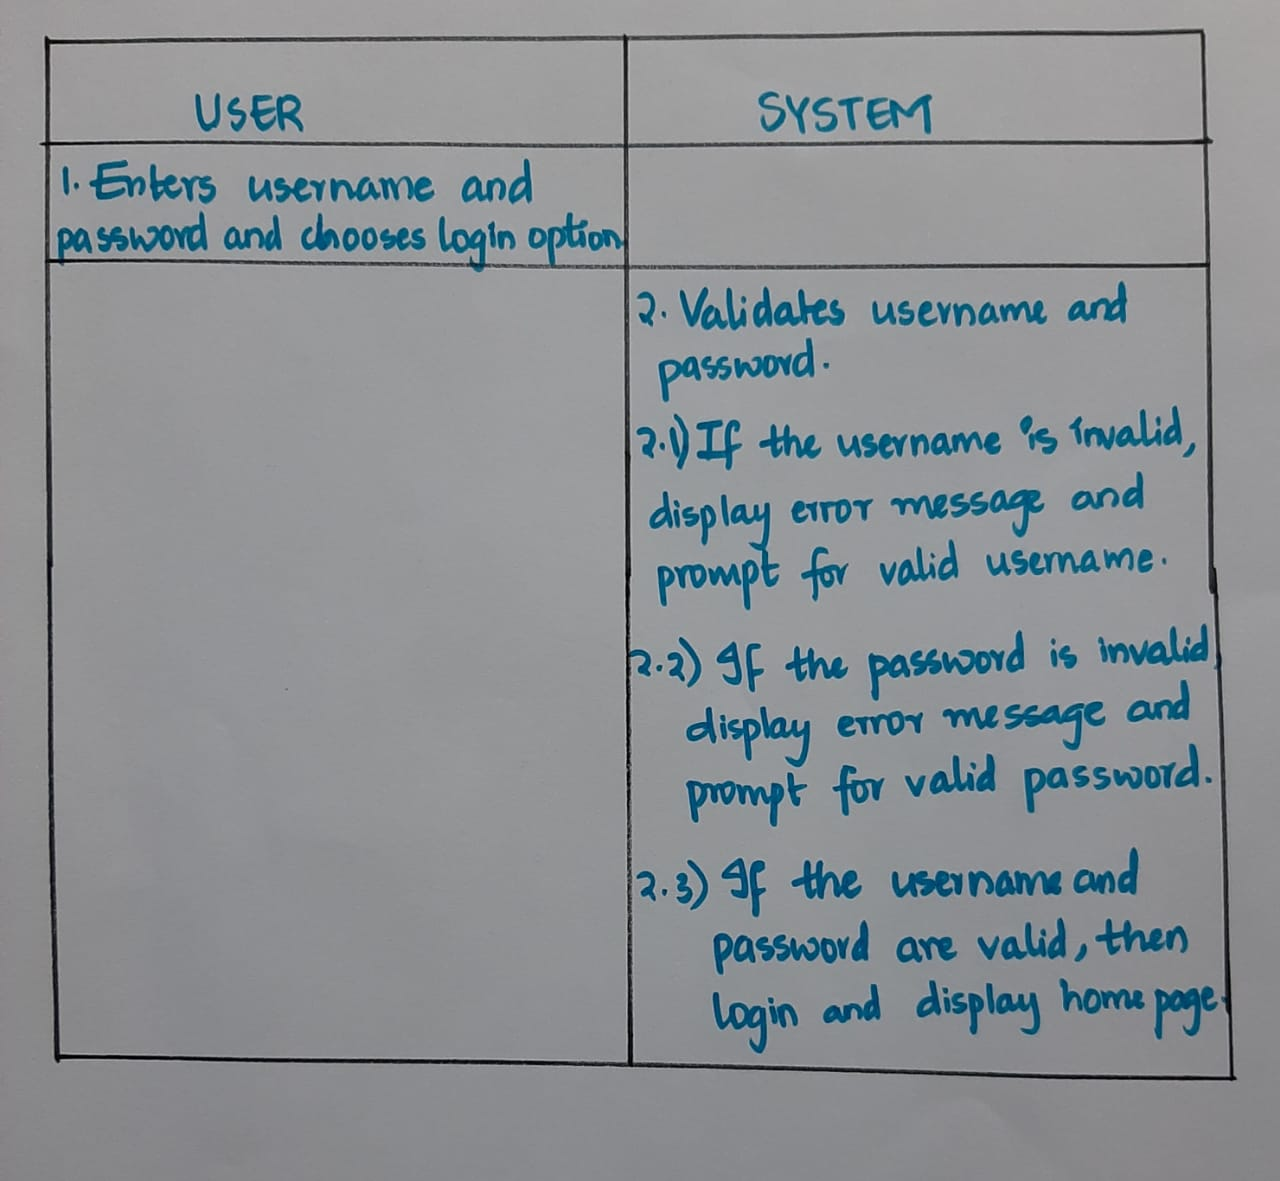 USER
SYSTEM
1. Enters username and
password and chooses login option
2. Validates username and
password.
2.1) If the username is invalid,
display error message and
prompt for valid username.
2.2) If the password is invalid,
display error message and
prompt for valid password.
2.3) If the username and
password are valid, then
login and display home page.